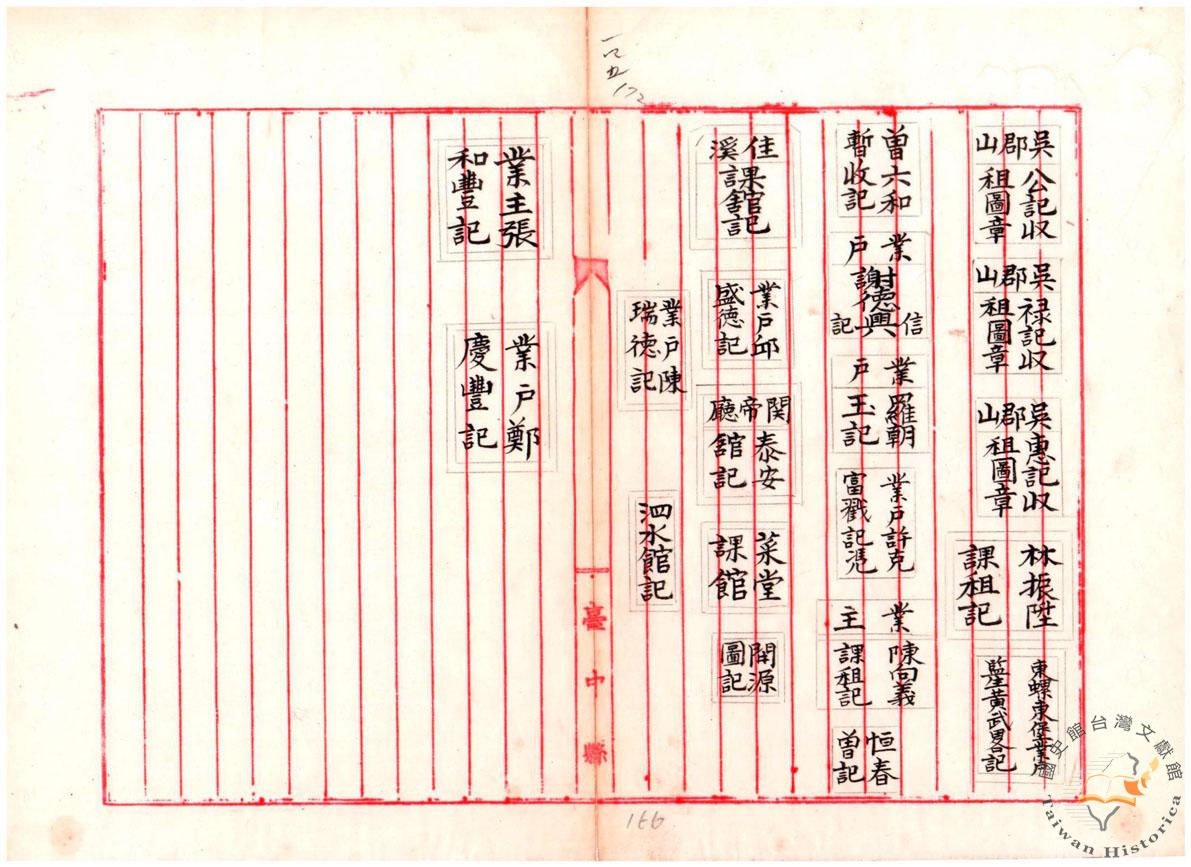 一六五
172
吳郡山
公記收
租圖章
吳郡山
祿記收
租圖章
吳郡山
惠記收
租圖章
林振陞
課租記
東螺東保業戶
監生黃武畧記
曾六和
暫收記
業戶
謝德興
信記
業戶
羅朝
玉記
業戶許克
富戳記憑
業主
陳向義
課租記
恒春
曾記
佳溪
課館記
業戶邱
盛德記
関帝廳
泰安
舘記
菜堂
課館
開源
圖記
業戶陳
瑞德記
泗水館記
臺中縣
業主張
和豐記
業戶鄭
慶豐記
166
國史館台灣文獻館
Taiwan Historica